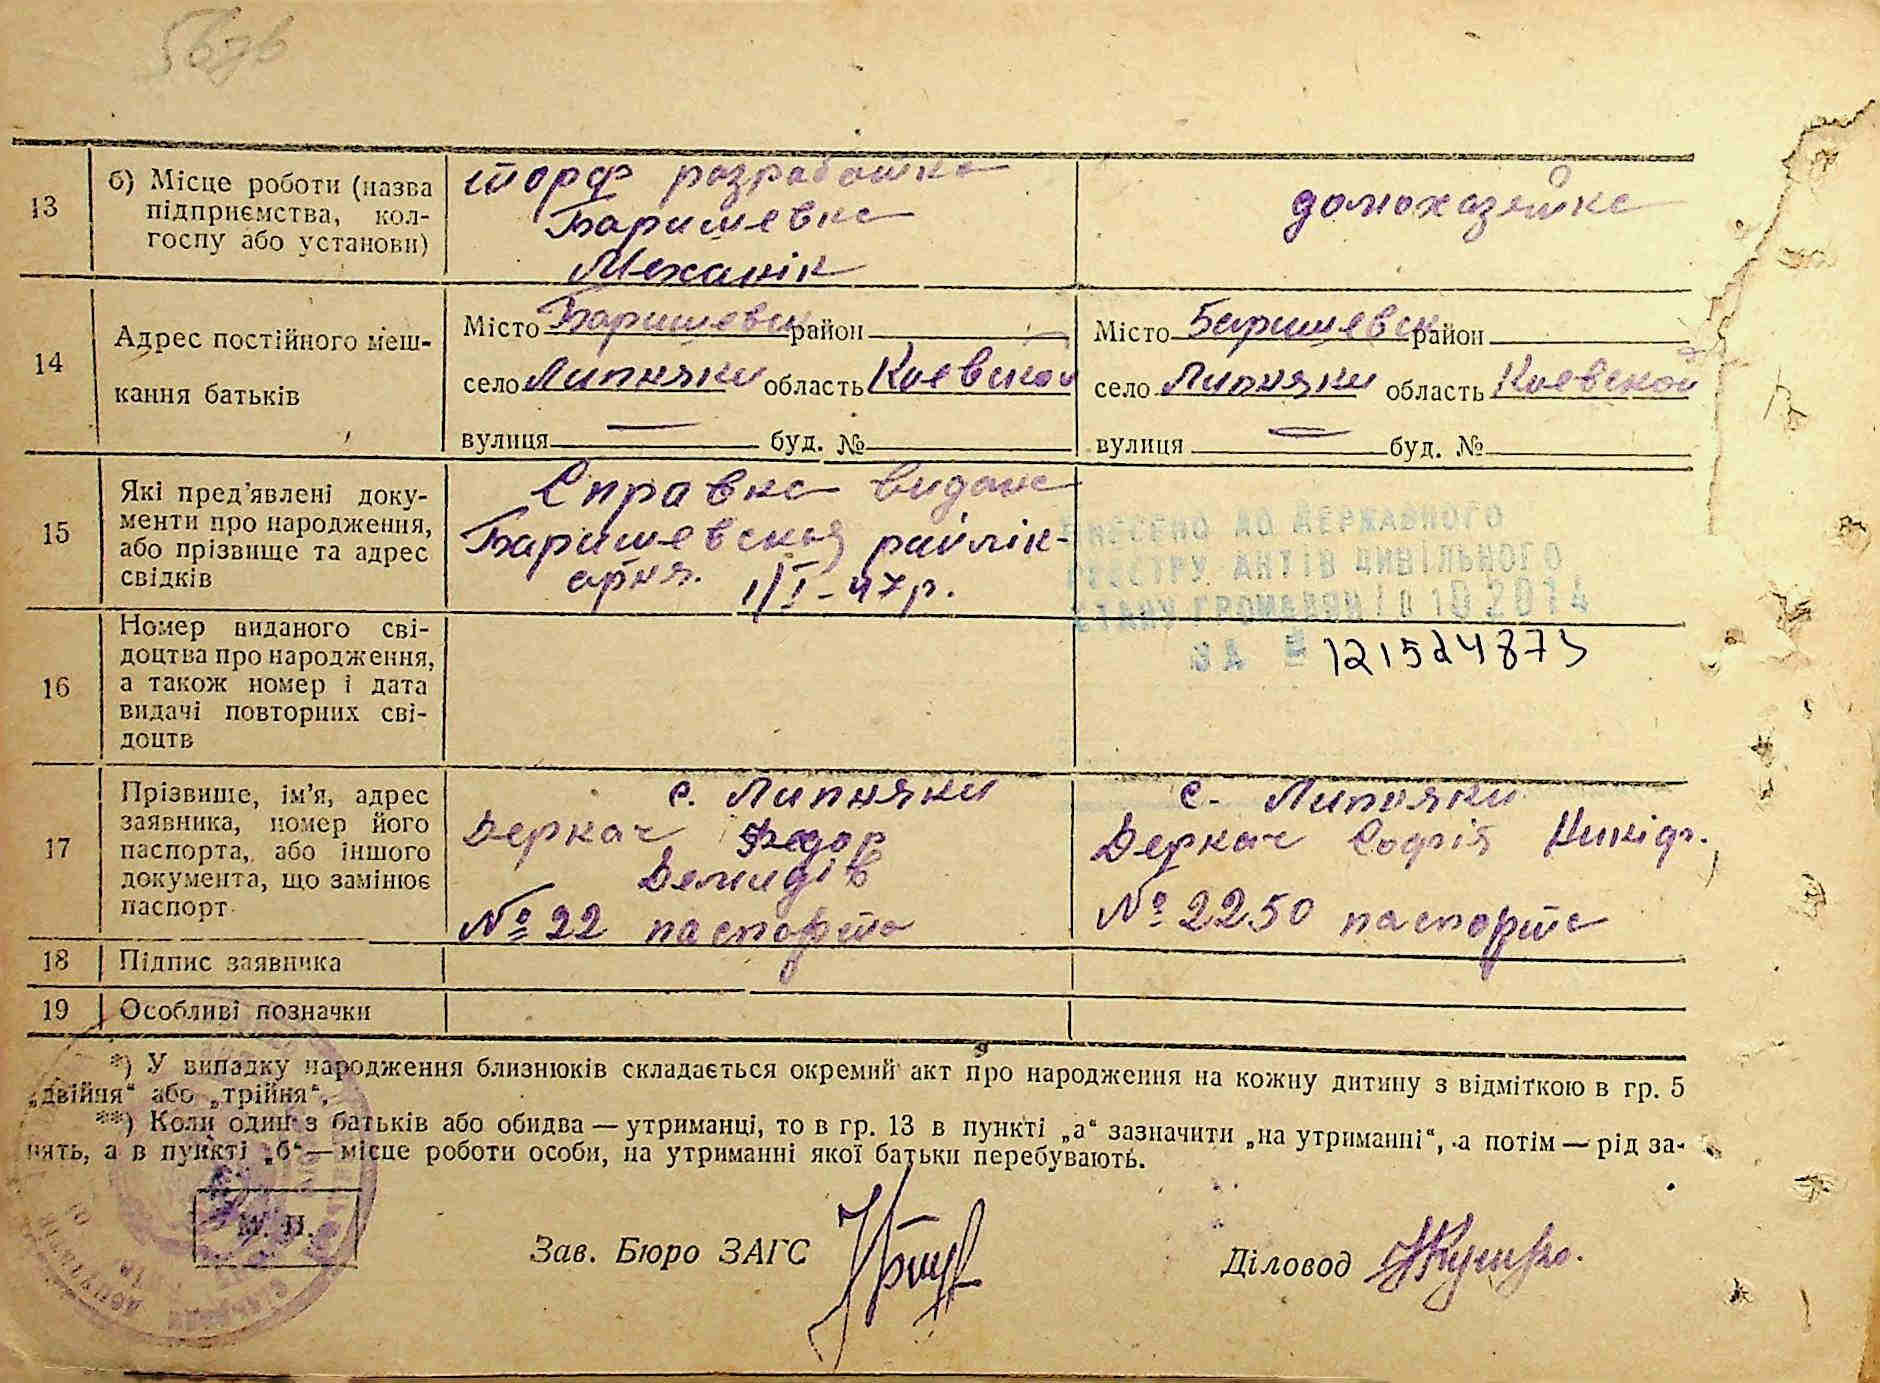 13
б) Місце роботи (назва
підприємства, кол-
госпу або установи)
торф разработка
Баришевка
Механік
домохазяйка
14
Адрес постійного меш-
кання батьків
Місто Баришевск район
село Липняки область Киевской
вулиця — буд. №
Місто Баришевск район
село Липняки область Киевской
вулиця — буд. №
15
Які пред’явлені доку-
менти про народження,
або прізвище та адрес
свідків
Справка видана
Баришевская райлік-
арня. 1/I-47р.
ВНЕСЕНО ДО ДЕРЖАВНОГО
РЕЄСТРУ АКТІВ ЦИВІЛЬНОГО
СТАНУ ГРОМАДЯН 10 10 2014
ЗА № 121524873
16
Номер виданого сві-
доцтва про народження,
а також номер і дата
видачі повторних сві-
доцтв
17
Прізвище, ім’я, адрес
заявника, номер його
паспорта, або іншого
документа, що замінює
паспорт
с. Липняки
Деркач Федор
Демидів
№ 22 паспорта
с. Липняки
Деркач Софія Никіф.
№ 2250 паспорта
18
Підпис заявника
19
Особливі позначки
*) У випадку народження близнюків складається окремий акт про народження на кожну дитину з відміткою в гр. 5
„двійня“ або „трійня“.
**) Коли один з батьків або обидва — утриманці, то в гр. 13 в пункті „а“ зазначити „на утриманні“, а потім — рід за-
нять, а в пункті „б“ — місце роботи особи, на утриманні якої батьки перебувають.
М. П.
Зав. Бюро ЗАГС
Діловод